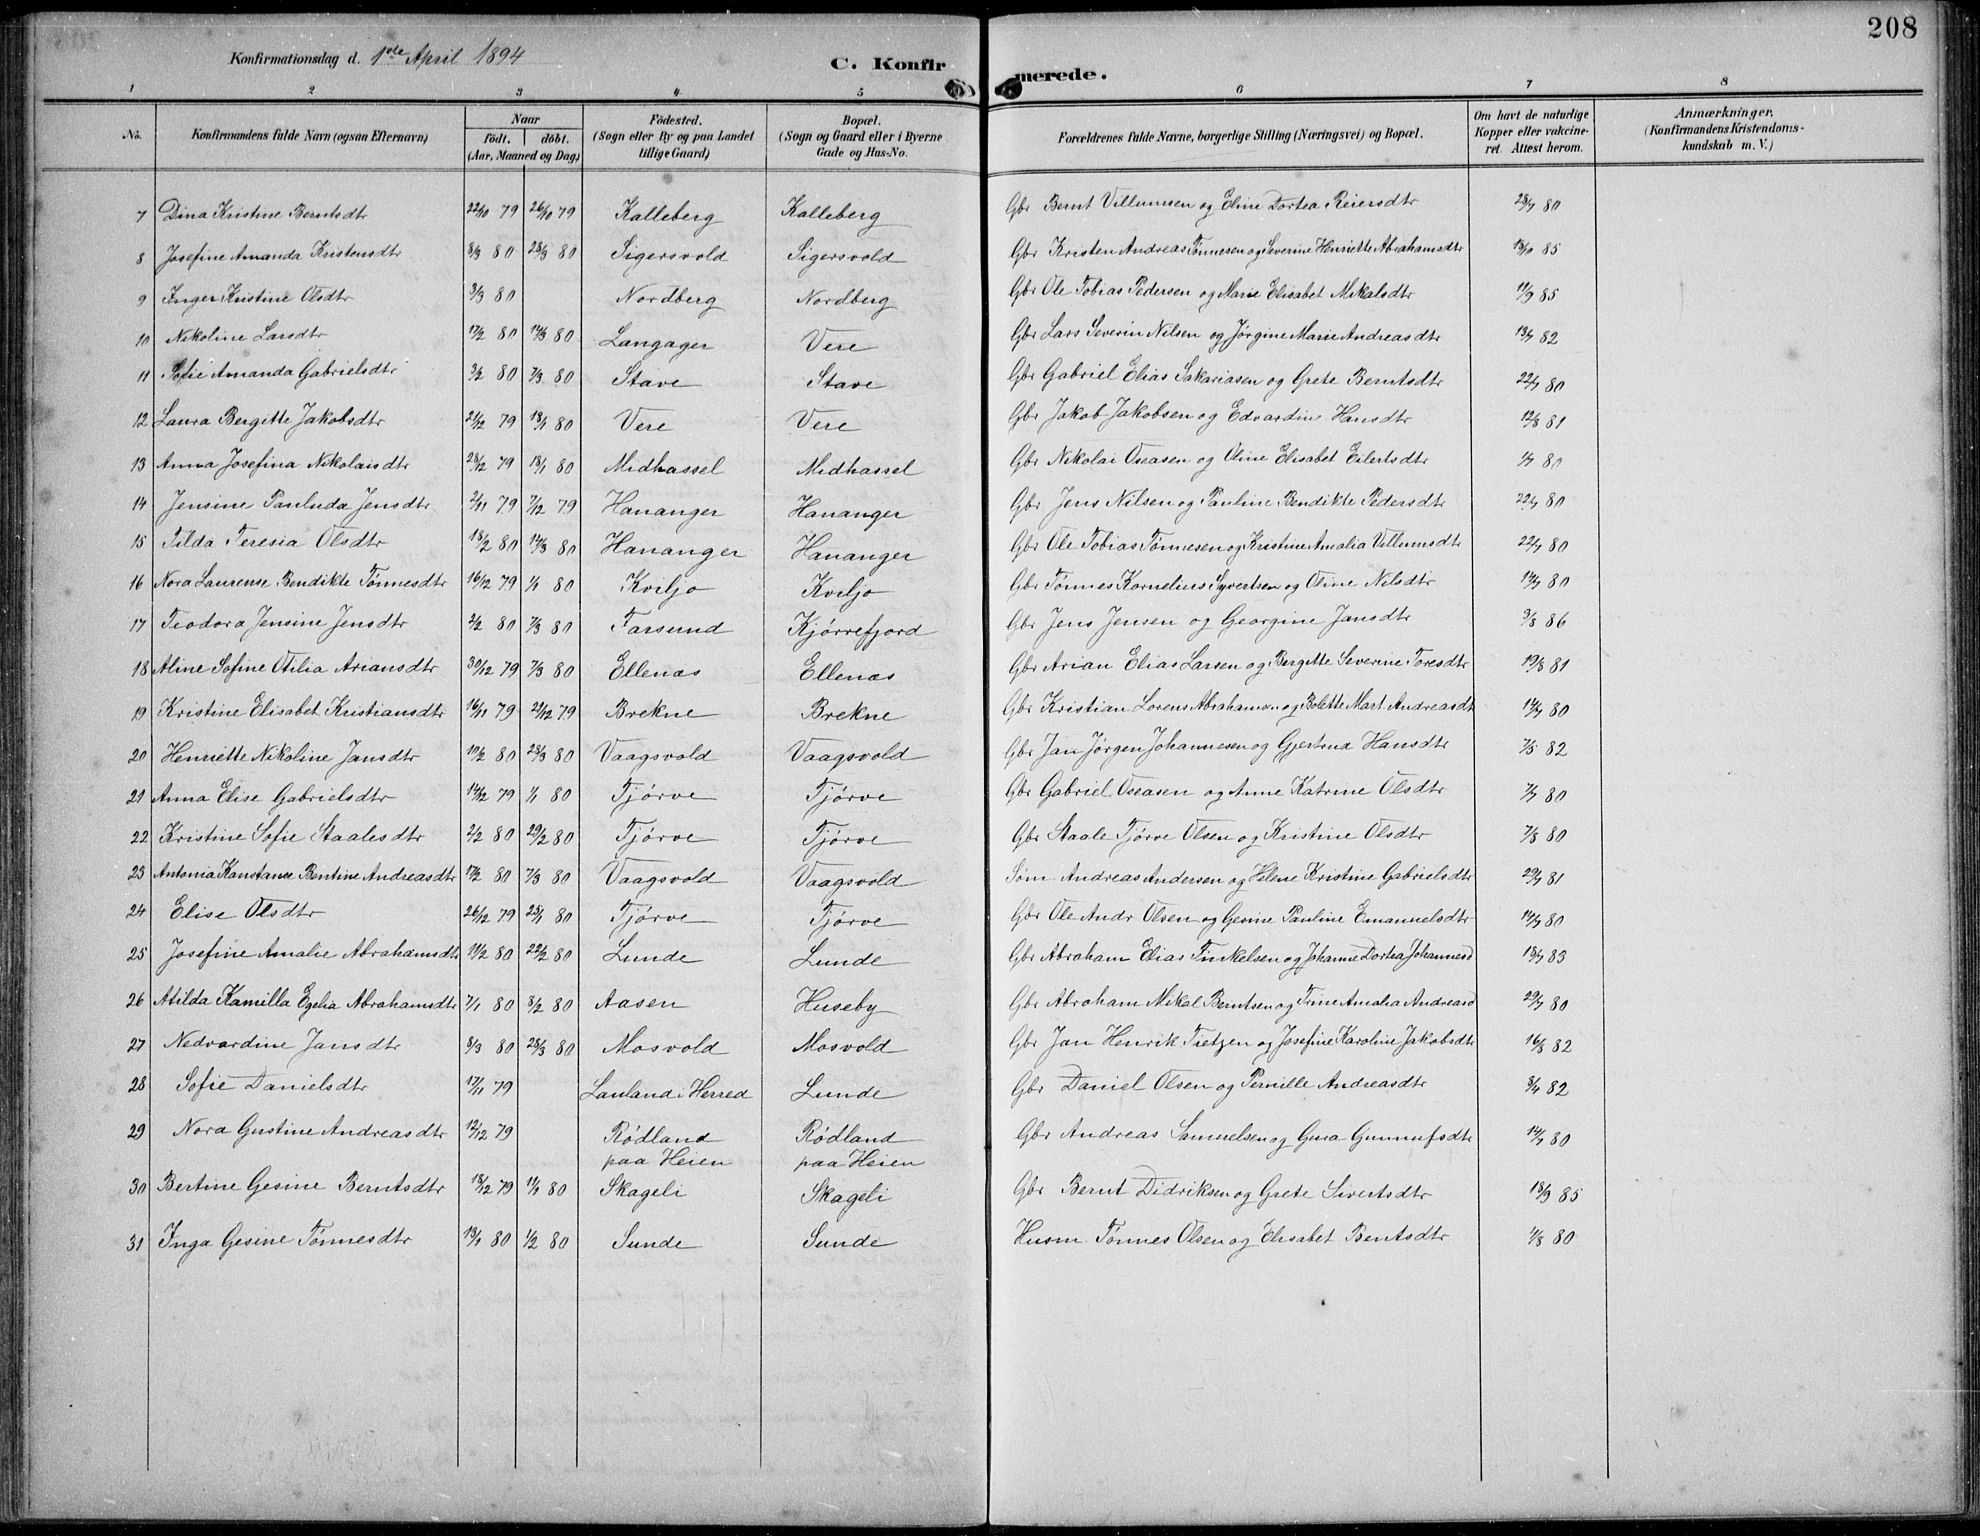 208
Konfirmationsdag d. 1ste April 1894
C. Konfirmerede.
1 2 3 4 5 6 7 8
No. Konfirmandens fulde Navn (ogsaa Efternavn) Naar födt. döbt. (Aar, Maaned og Dag) Födested. (Sogn eller By og paa Landet tillige Gaard) Bopæl. (Sogn og Gaard eller i Byerne Gade og Hus-No. Forældrenes fulde Navne, borgerlige Stilling (Næringsvei) og Bopæl. Om havt de naturlige Kopper eller vakcineret. Attest herom. Anmærkninger. (Konfirmandens Kristendomskundskab m. V.)
7 Dina Kristine Berntsdtr 22/10 79 26/10 79 Kalleberg Kalleberg Gbr Bernt Villumsen og Eline Dortea Reiersdtr 28/7 80
8 Josefine Amanda Kristensdtr 8/3 80 28/3 80 Sigersvold Sigersvold Gbr Kristen Andreas Tønnesen og Severine Henriette Abrahamsdtr 18/10 85
9 Inger Kristine Olsdtr 3/3 80 Nordberg Nordberg Gbr Ole Tobias Pedersen og Marie Elisabet Mikalsdtr 11/9 85
10 Nikoline Larsdtr 17/2 80 14/3 80 Langager Vere Gbr Lars Severin Nilsen og Jørgine Marie Andreasdtr 13/7 82
11 Sofie Amanda Gabrielsdtr 3/2 80 7/3 80 Stave Stave Gbr Gabriel Elias Sakariasen og Grete Berntsdtr 22/7 80
12 Laura Bergitte Jakobsdtr 21/12 79 18/1 80 Vere Vere Gbr Jakob Jakobsen og Edvardine Hansdtr 12/8 81
13 Anna Josefina Nikolaisdtr 28/12 79 18/1 80 Midhassel Midhassel Gbr Nikolai Oseasen og Oline Elisabet Eilertsdtr 1/7 80
14 Jensine Pauluda Jensdtr 2/11 79 7/12 79 Hananger Hananger Gbr Jens Nilsen og Pauline Bendikte Pedersdtr 22/7 80
15 Tilda Teresia Olsdtr 18/2 80 14/3 80 Hananger Hananger Gbr Ole Tobias Tønnesen og Kristine Amalia Villumsdtr 22/7 80
16 Nora Laurense Bendikte Tønnesdtr 16/12 79 1/1 80 Kviljo Kviljo Gbr Tønnes Kornelius Syvertsen og Oline Nilsdtr 14/7 80
17 Teodora Jensine Jensdtr 2/2 80 7/3 80 Farsund Kjørrefjord Gbr Jens Jensen og Georgine Jansdtr 3/8 86
18 Aline Sofine Otilia Ariansdtr 30/12 79 7/3 80 Ellenæs Ellenæs Gbr Arian Elias Larsen og Bergitte Severine Toresdtr 19/8 81
19 Kristine Elisabet Kristiansdtr 16/11 79 21/12 79 Brekne Brekne Gbr Kristian Lorens Abrahamsen og Bolette Mart Andreasdt 14/7 80
20 Henriette Nikoline Jansdtr 10/2 80 28/3 80 Vaagsvold Vaagsvold Gbr Jan Jørgen Johannesen og Gjertrud Hansdtr 7/5 82
21 Anna Elise Gabrielsdtr 14/12 79 1/1 80 Tjørve Tjørve Gbr Gabriel Oseasen og Anne Katrine Olsdtr 7/7 80
22 Kristine Sofie Staalesdtr 2/2 80 29/2 80 Tjørve Tjørve Gbr Staale Tjørve Olsen og Kristine Olsdtr 7/8 80
23 Antonia Konstanse Bentine Andreasdtr 17/2 80 7/3 80 Vaagsvold Vaagsvold Søm. Andreas Andersen og Helene Kristine Gabrielsdtr 29/7 81
24 Elise Olsdtr 26/12 79 25/1 80 Tjørve Tjørve Gbr Ole Andr Olsen og Gesine Pauline Emanuelsdtr 14/7 80
25 Josefine Amalie Abrahamsdtr 11/2 80 22/2 80 Lunde Lunde Gbr Abraham Elias Tinkelsen og Johanne Dortea Johannesd 18/7 83
26 Atilda Kamilla Egelia Abrahamsdtr 7/1 80 8/2 80 Aasen Huseby Gbr Abraham Mikal Berntsen og Trine Amalia Andreasd 29/7 80
27 Nedvardine Jansdtr 8/3 80 28/3 80 Mosvold Mosvold Gbr Jan Henrik Tietzen og Josefine Karoline Jakobsdtr 16/8 82
28 Sofie Danielsdtr 17/11 79 Lauland i Herred Lunde Gbr Daniel Olsen og Pernille Andreasdtr 8/4 82
29 Nora Gustine Andreasdtr 12/12 79 Rødland paa Heien Rødland paa Heien Gbr Andreas Samuelsen og Gura Gunnufsdtr 14/7 80
30 Bertine Gesine Berntsdtr 18/12 79 11/1 80 Skageli Skageli Gbr Bernt Didriksen og Grete Sivertsdtr 18/9 85
31 Inga Gesine Tønnesdtr 19/1 80 1/2 80 Sunde Sunde Husm Tønnes Olsen og Elisabet Berntsdtr 4/8 80